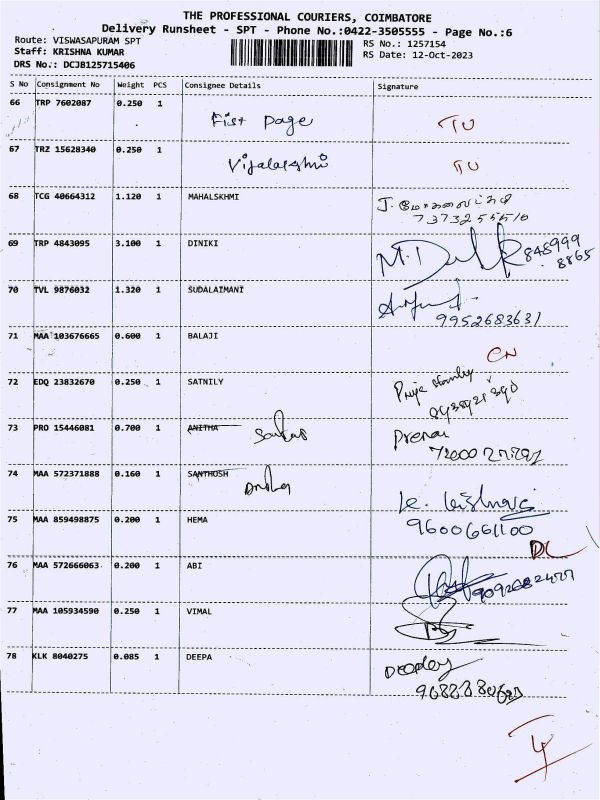 THE PROFESSIONAL COURIERS, COIMBATORE
Delivery Runsheet - SPT - Phone No.:0422-3505555 - Page No.:6
Route: VISWASAPURAM SPT
Staff: KRISHNA KUMAR
DRS No.: DCJB125715406
RS No.: 1257154
RS Date: 12-Oct-2023
S No Consignment No Weight PCS Consignee Details Signature
66 TRP 7602087 0.250 1
Fist page TU
67 TRZ 15628340 0.250 1
Vijalakshmi TU
68 TCG 40664312 1.120 1 MAHALSKHMI
7373255510
69 TRP 4843095 3.100 1 DINIKI
848999
8865
70 TVL 9876032 1.320 1 SUDALAIMANI
9952683631
71 MAA 103676665 0.600 1 BALAJI
CN
72 EDQ 23832670 0.250 1 SATNILY
73 PRO 15446081 0.700 1 ANITHA
74 MAA 572371888 0.160 1 SANTHOSH
75 MAA 859498875 0.200 1 HEMA
9600661100
DL
76 MAA 572666063 0.200 1 ABI
77 MAA 105934590 0.250 1 VIMAL
78 KLK 8040275 0.085 1 DEEPA